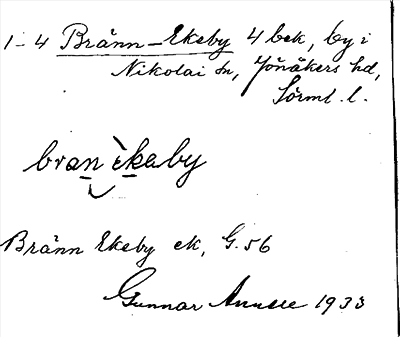 1-4 Bränn-Ekeby 4 bek, by i
Nikolai sn, Jönåkers hd,
Sörml. l.
bran èkeby
Bränn Ekeby ek, G. 56
Gunnar 1933